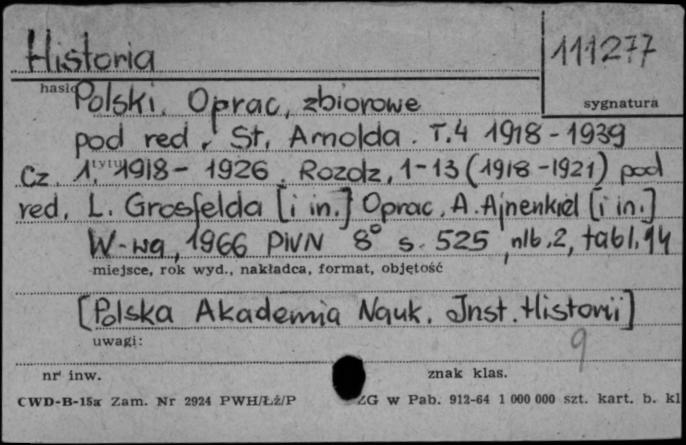 Historia
111277
hasło
Polski. Oprac. zbiorowe
sygnatura
pod red. St. Arnolda. T.4 1918-1939
tytuł
Cz. 1. 1918-1926. Rozdz. 1-13 (1918-1921) pod
red. L. Grosfelda [i in.] Oprac. A. Ajnenkiel [i in.]
W-wa, 1966 PWN 8° s. 525, nlb. 2, tabl. 14
miejsce, rok wyd., nakładca, format, objętość
[Polska Akademia Nauk. Inst. Historii]
uwagi:
9
nr inw.
znak klas.
CWD-B-15a Zam. Nr 2924 PWH/Łź/P
ZG w Pab. 912-64 1 000 000 szt. kart. b. kl